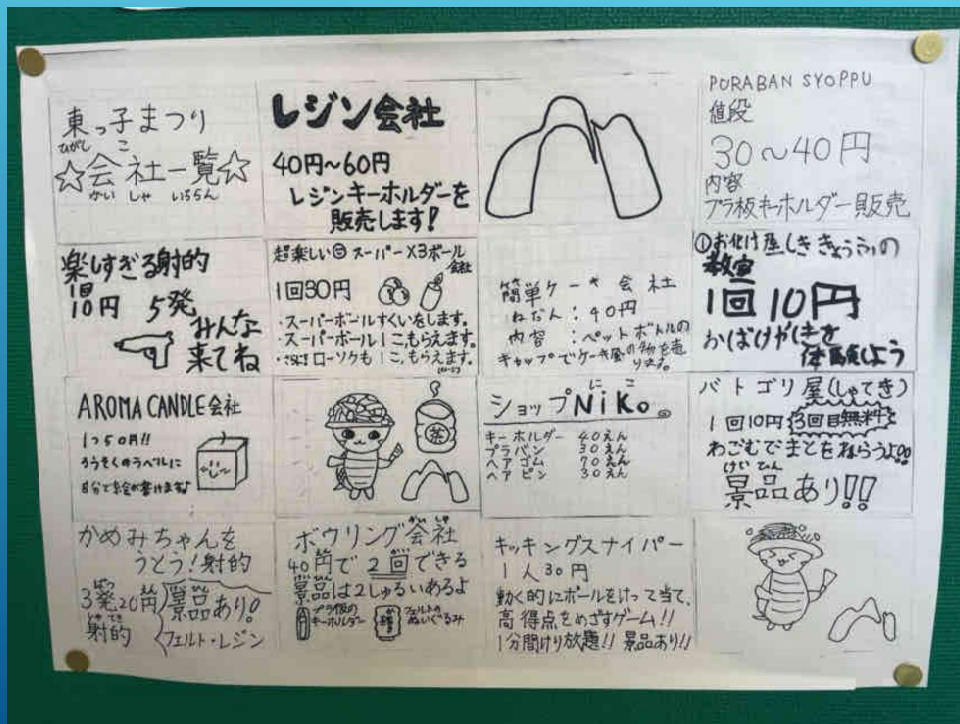 東っ子まつり
ひがし こ
☆会社一覧☆
かい しゃ いちらん
レジン会社
40円～60円
レジンキーホルダーを
販売します!
PURABAN SYOPPU
値段
30～40円
内容
プラ板キーホルダー販売
楽しすぎる射的
1回
10円 5発
みんな
来てね
超楽しい スーパー×3ボール
会社
1回30円
・スーパーボールすくいをします。
・スーパーボール1こもらえます。
・さらにローソクも1こ、もらえます。
簡単ケーキ会社
ねだん:40円
内容:ペットボトルの
キャップでケーキ屋の物を売
ります。
①お化け屋しききょうふの
教室
1回10円
体験しよう
AROMA CANDLE会社
1つ50円!!
ろうそくのラベルに
自分で絵が書けます♪
茶
ショップNiKo。
にこ
キーホルダー 40えん
プラバン 30えん
ヘアゴム 70えん
ヘアピン 30えん
バトゴリ屋(しゃてき)
1回10円 3回目無料
わごむでまとをねらうよ!!
けいひん
景品あり!!
かめみちゃんを
うとう!射的
3発20円
射的
景品あり!
フェルト・レジン
ボウリング会社
40円で2回できる
景品は2しゅるいあるよ
プラ板の
キーホルダー
フェルトの
ぬいぐるみ
キッキングスナイパー
1人30円
動く的にボールをけって当て、
高得点をめざすゲーム!!
1分間けり放題!! 景品あり!!